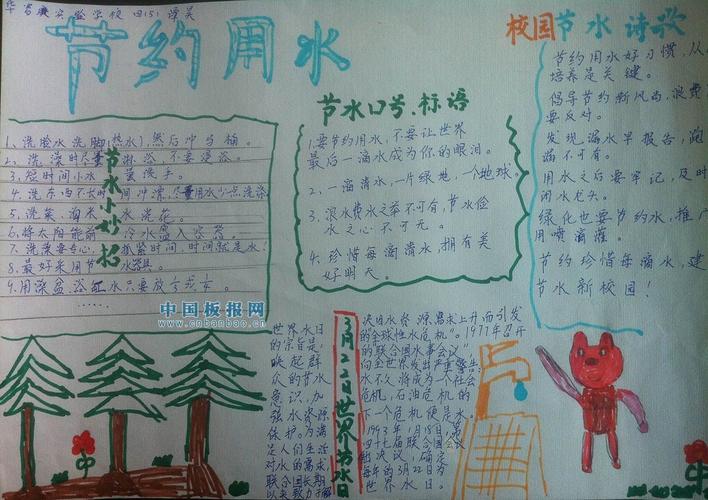 实验学校 四(5)
节约用水
校园节水诗歌
节水口号、标语
节水小妙招
1、洗脸水洗脚(热水),然后冲马桶。
2、洗澡时尽量淋浴,不要浸浴。
3、短时间小水洗手。
4、洗东西不长时间冲滴,尽量用水少点洗涤
5、洗菜、淘米水浇花。
6、将太阳能前冷水盆入容器
7、洗澡要专心,抓紧时间,时间就是水!
8、最好采用节水器具。
9、用澡盆浴缸水只要放
1.要节约用水,不要让世界
最后一滴水成为你的眼泪。
2、一滴清水,一片绿地,一个地球。
3、浪费水之举不可有,节水俭
水之心不可无。
4、珍惜每滴清水,拥有美
好明天。
节约用水好习惯,从
培养是关键。
倡导节约新风尚,浪费
要反对。
发现漏水早报告,跑
漏不可有。
用水之后要牢记,及时
闭水龙头。
绿化也要节约水,推广
用喷滴灌。
节约珍惜每滴水,建
节水新校园!
中国板报网
www.cnbanbao.cn
世界水日
的宗旨是
唤起群
众的节水
意识,加
强水资源
保护。为满
足人们生活
对水的需求
联合国长期
以来致力于解
3月22日世界访水日
决因水资源需求上升而引发
的全球性水危机。1977年召开
的联合国水事会议”
向全世界发出严重警告:
水不久将成为一个社会
危机,石油危机的
下一个危机便是水。
1993年1月18日,第
四十七届联合国会
制决议,确定
每年的3月22日为
世界水日。